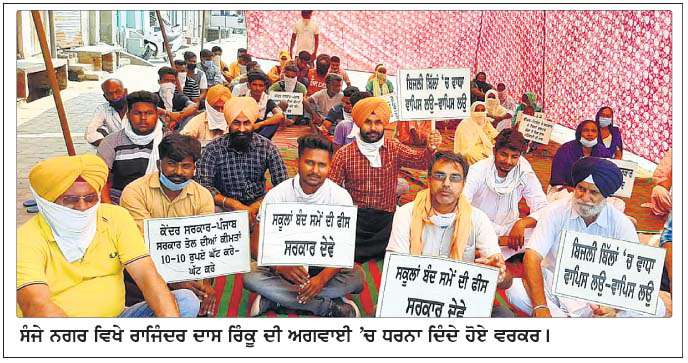 ਬਿਜਲੀ ਬਿੱਲਾਂ 'ਚ ਵਾਧਾ
ਵਾਪਿਸ ਲਉ-ਵਾਪਿਸ ਲਉ
ਕੇਂਦਰ ਸਰਕਾਰ-ਪੰਜਾਬ
ਸਰਕਾਰ ਤੇਲ ਦੀਆਂ ਕੀਮਤਾਂ
10-10 ਰੁਪਏ ਘੱਟ ਕਰੇ-
ਘੱਟ ਕਰੇ
ਸਕੂਲਾਂ ਬੰਦ ਸਮੇਂ ਦੀ ਫੀਸ
ਸਰਕਾਰ ਦੇਵੇ
ਸਕੂਲਾਂ ਬੰਦ ਸਮੇਂ ਦੀ ਫੀਸ
ਸਰਕਾਰ ਦੇਵੇ
ਬਿਜਲੀ ਬਿੱਲਾਂ 'ਚ ਵਾਧਾ
ਵਾਪਿਸ ਲਉ-ਵਾਪਿਸ ਲਉ
ਸੰਜੇ ਨਗਰ ਵਿਖੇ ਰਾਜਿੰਦਰ ਦਾਸ ਰਿੰਕੂ ਦੀ ਅਗਵਾਈ 'ਚ ਧਰਨਾ ਦਿੰਦੇ ਹੋਏ ਵਰਕਰ।